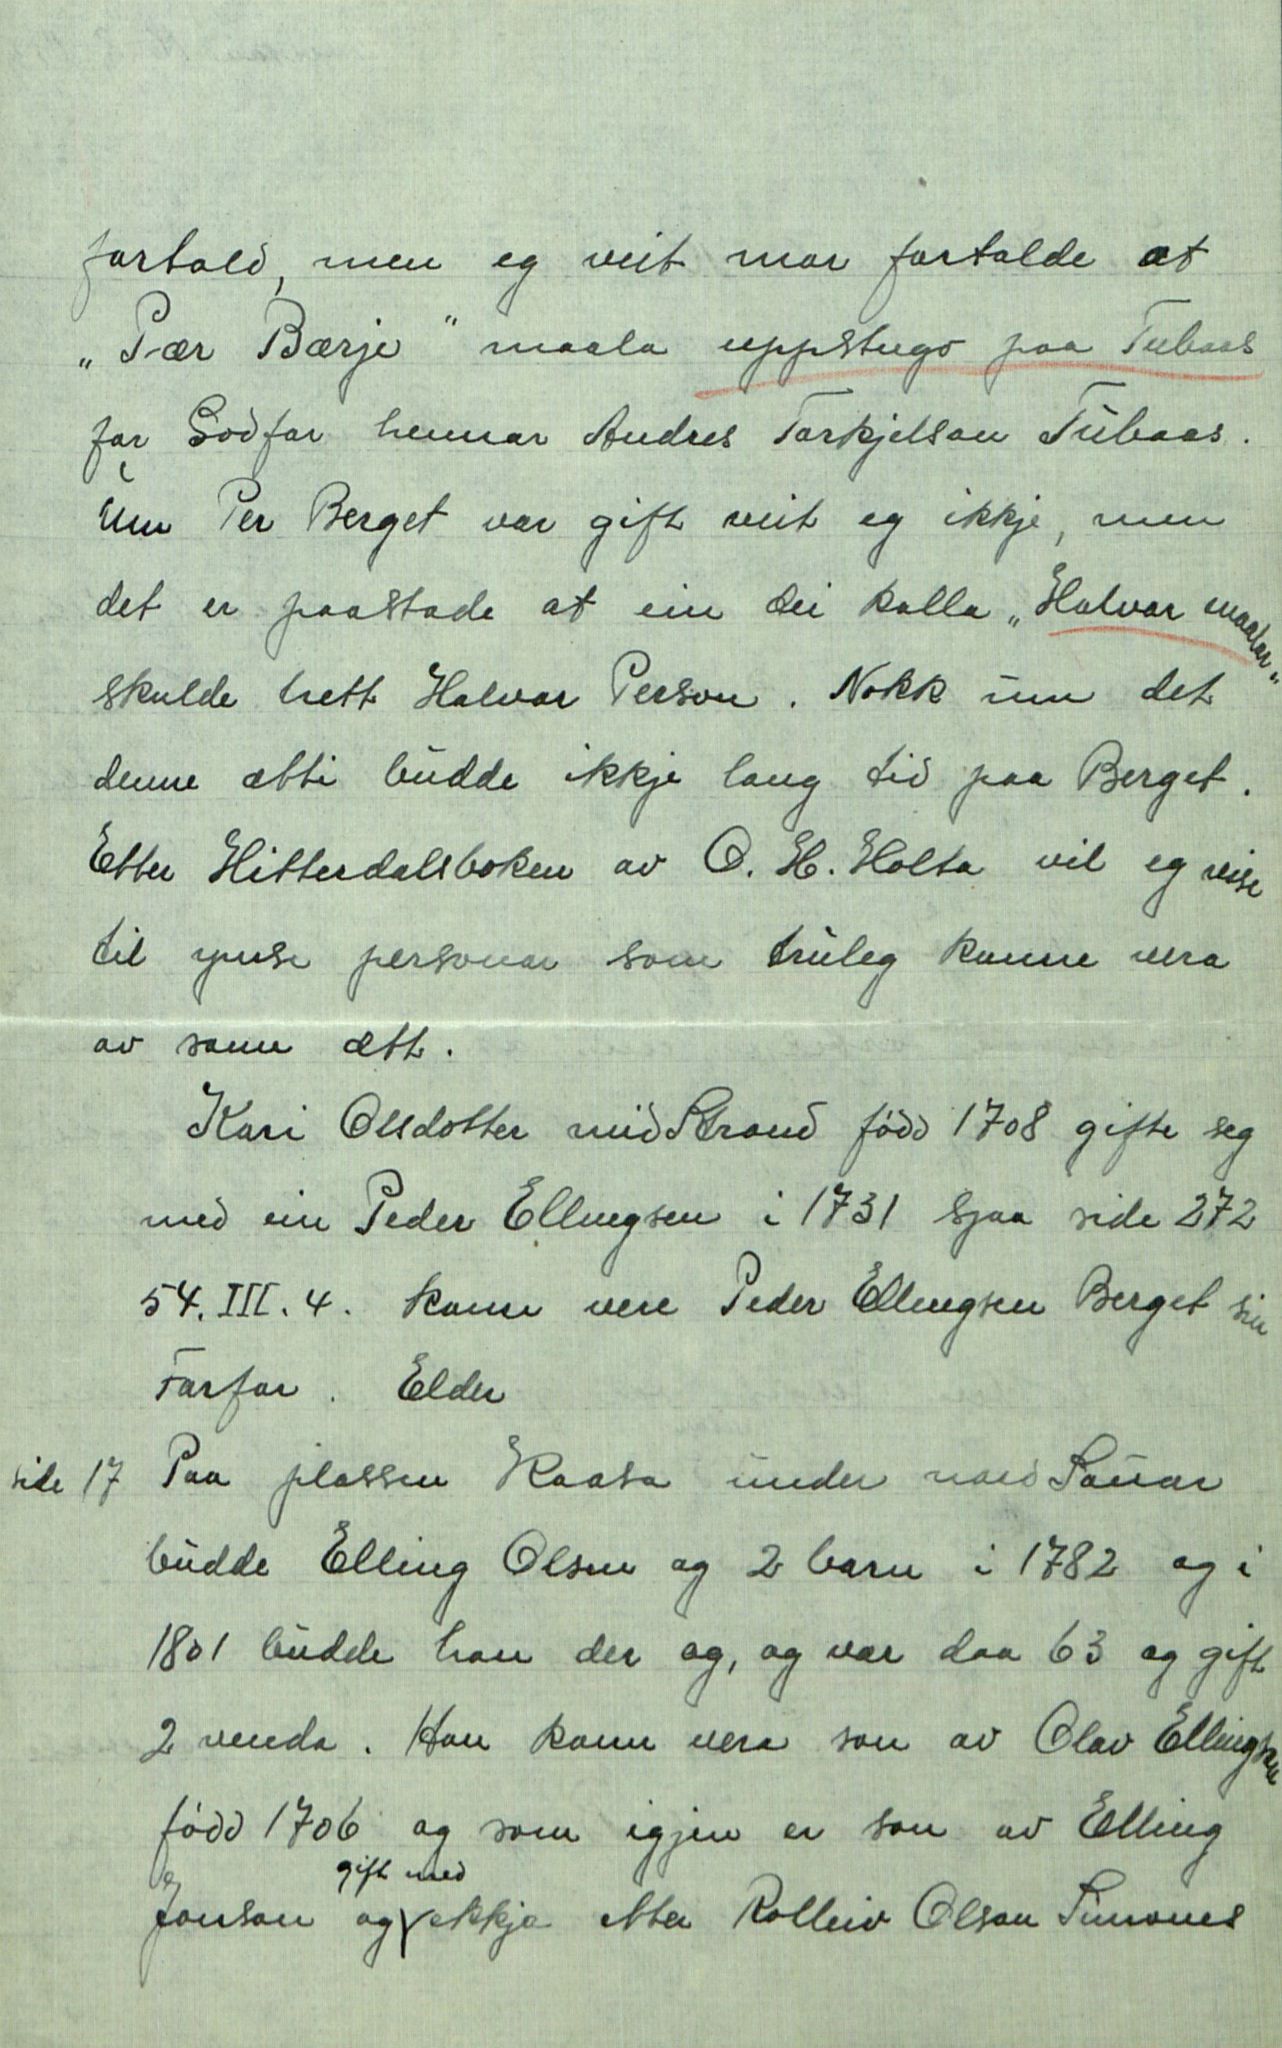 fortald, men eg veit mor fortalde at
„Pær Bærje" maala uppstugo paa Tubaas
for Godfar hennar Andres Torkjelson Tubaas.
Um Per Berget var gift veit eg ikkje, men
det er paastade at ein dei kalla „Halvor maalar"
skulde hett Halvor Person. Nokk um det
denne ætti budde ikkje lang tid paa Berget.
Etter Hitterdalsboken av O. H. Holta vil eg vise
til ymse personar som truleg kanne vera
av same ætt.
Kari Olsdotter mid Strand född 1708 gifte seg
med ein Peder Ellingsen i 1731 sjaa side 272
54. III. 4. kann vere Peder Ellingsen Berget sin
Farfar. Elder
side 17 Paa plassen Kaasa under nord Sauar
budde Elling Olsen og 2 barn i 1782 og i
1801 budde han der og, og var daa 63 og gift
2 venda. Han kann vera son av Olav Ellingsen
född 1706 og som igjen er son av Elling
gift med
Jonson og ekkja etter Rolleiv Olson Simones